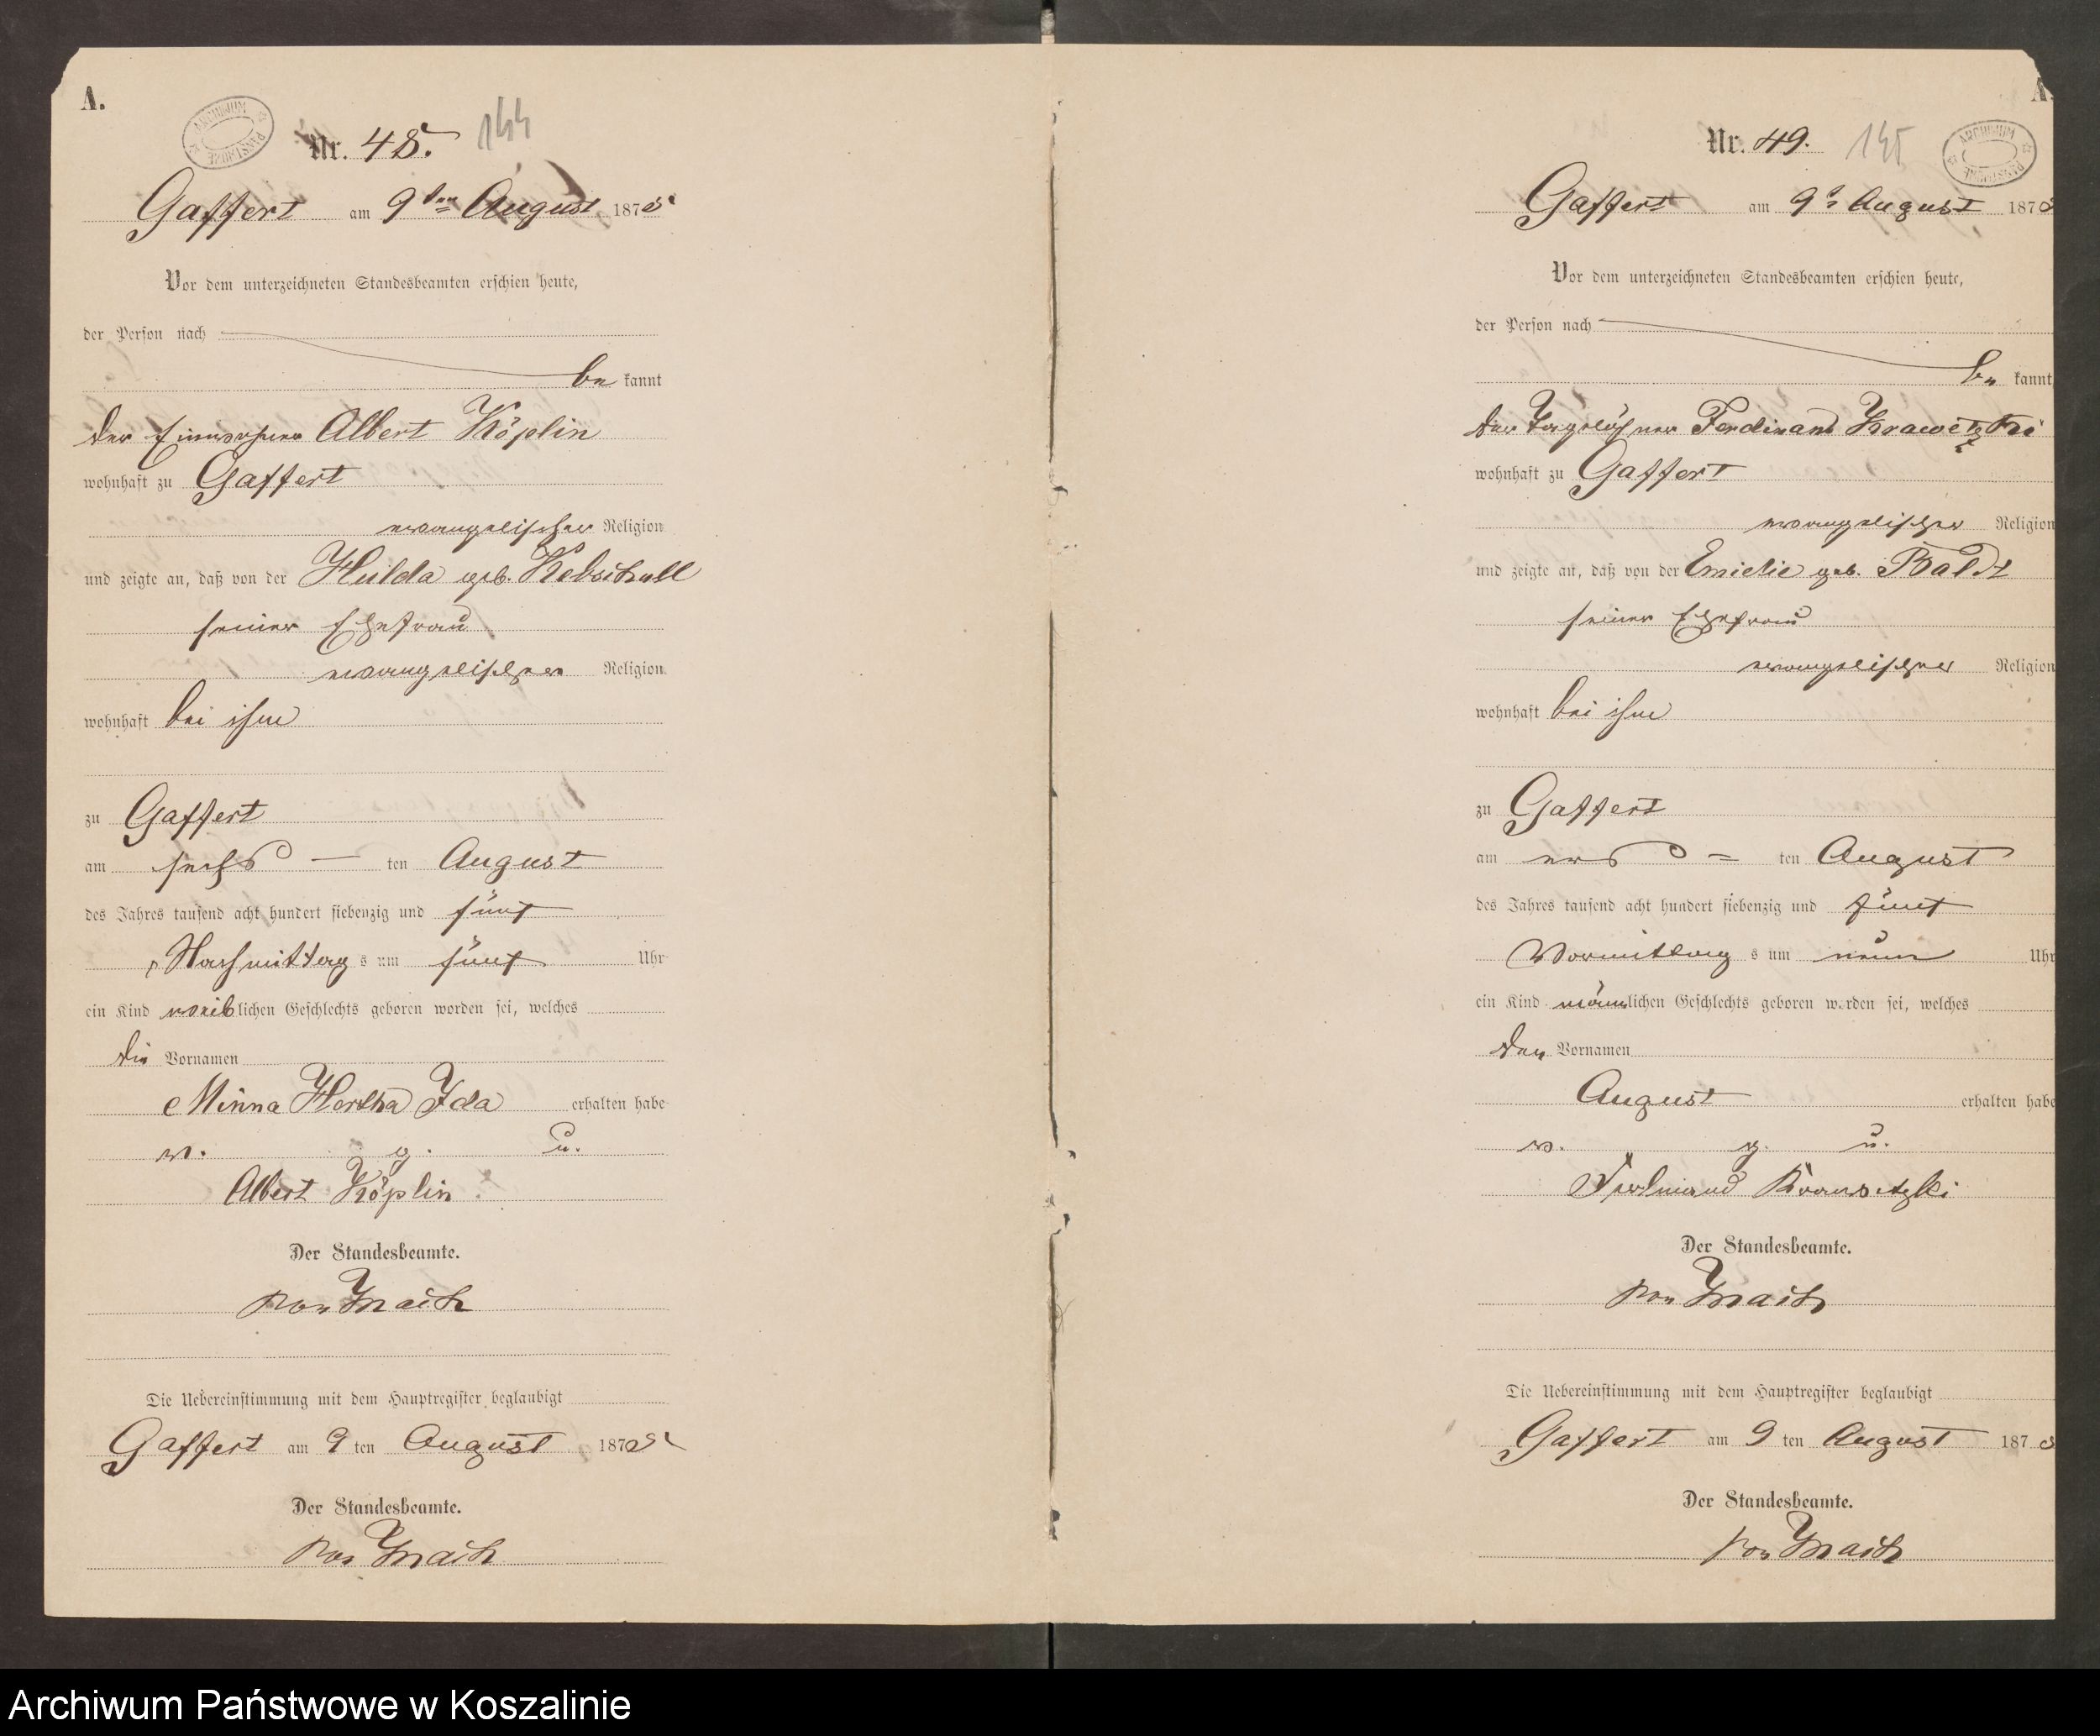 A.
ARCHIWUM PAŃSTWOWE
Nr. 48. 144
Gaffert am 9ten August 1875
Vor dem unterzeichneten Standesbeamten erschien heute,
der Person nach
be kannt
der Einwohner Albert Köplin
wohnhaft zu Gaffert
evangelischer Religion
und zeigte an, daß von der Hulda geb. Kebschull
seiner Ehefrau
evangelischer Religion
wohnhaft bei ihm
zu Gaffert
am sechs ten August
des Jahres tausend acht hundert siebenzig und fünf
Nachmittag s um fünf Uhr
ein Kind weiblichen Geschlechts geboren worden sei, welches
die Vornamen
Minna Hertha Ida erhalten habe
v. g. u.
Albert Köplin
Der Standesbeamte.
von
Die Uebereinstimmung mit dem Hauptregister beglaubigt
Gaffert am 9 ten August 1875
Der Standesbeamte.
von
A.
Nr. 49. 145
ARCHIWUM PAŃSTWOWE
Gaffert am 9t August 187
Vor dem unterzeichneten Standesbeamten erschien heute,
der Person nach
be kannt
der Tagelöhner Ferdinand Krawetzki
wohnhaft zu Gaffert
evangelischer Religion
und zeigte an, daß von der Emielie geb. Baldt
seiner Ehefrau
evangelischer Religion
wohnhaft bei ihm
zu Gaffert
am ten August
des Jahres tausend acht hundert siebenzig und fünf
Vormittag s um neun Uhr
ein Kind männlichen Geschlechts geboren worden sei, welches
den Vornamen
August erhalten habe
v. g. u.
Ferdinand Krawetzki
Der Standesbeamte.
von
Die Uebereinstimmung mit dem Hauptregister beglaubigt
Gaffert am 9 ten August 187
Der Standesbeamte.
von
Archiwum Państwowe w Koszalinie